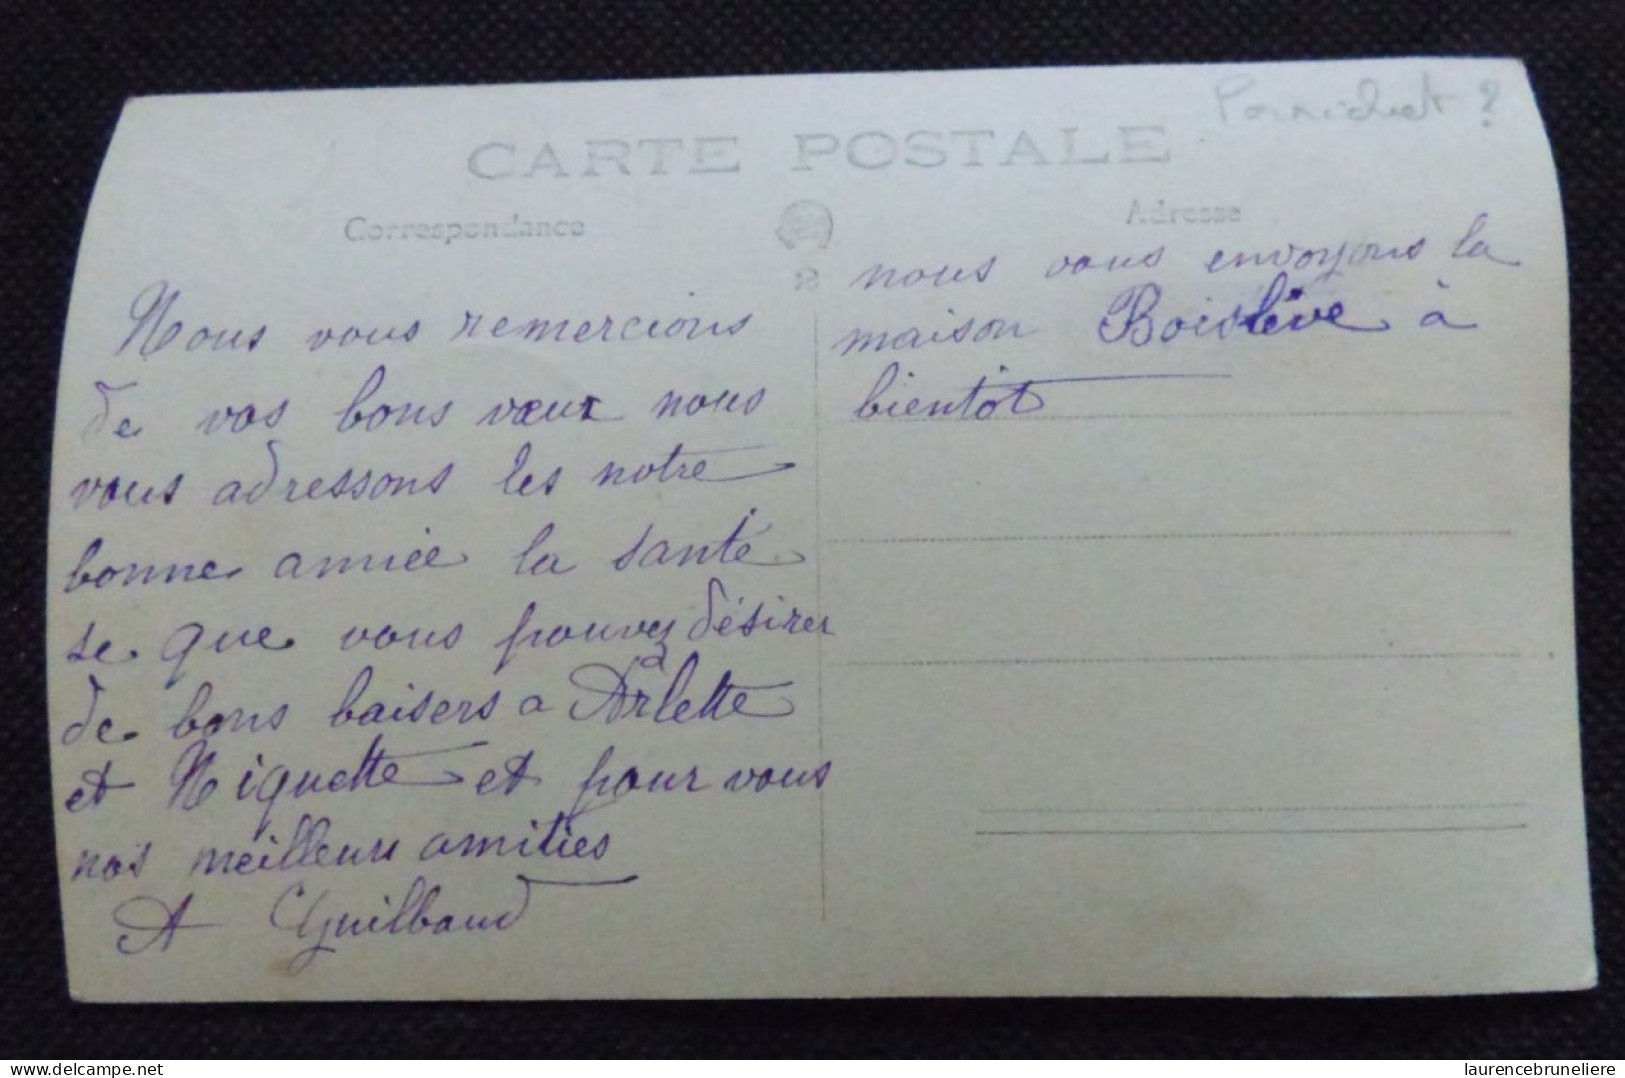 Pornichet ?
CARTE POSTALE
Correspondance
Adresse
2
Nous vous remercions
de vos bons vœux nous
vous adressons les notre
bonne amiée la santé
se que vous pouvez désirer
de bons baisers a Arlette
et Niquette et pour vous
nos meilleurs amitiés
A Guilbaud
nous vous envoyons la
maison Boislève à
bientôt
delcampe.net
laurencebruneliere